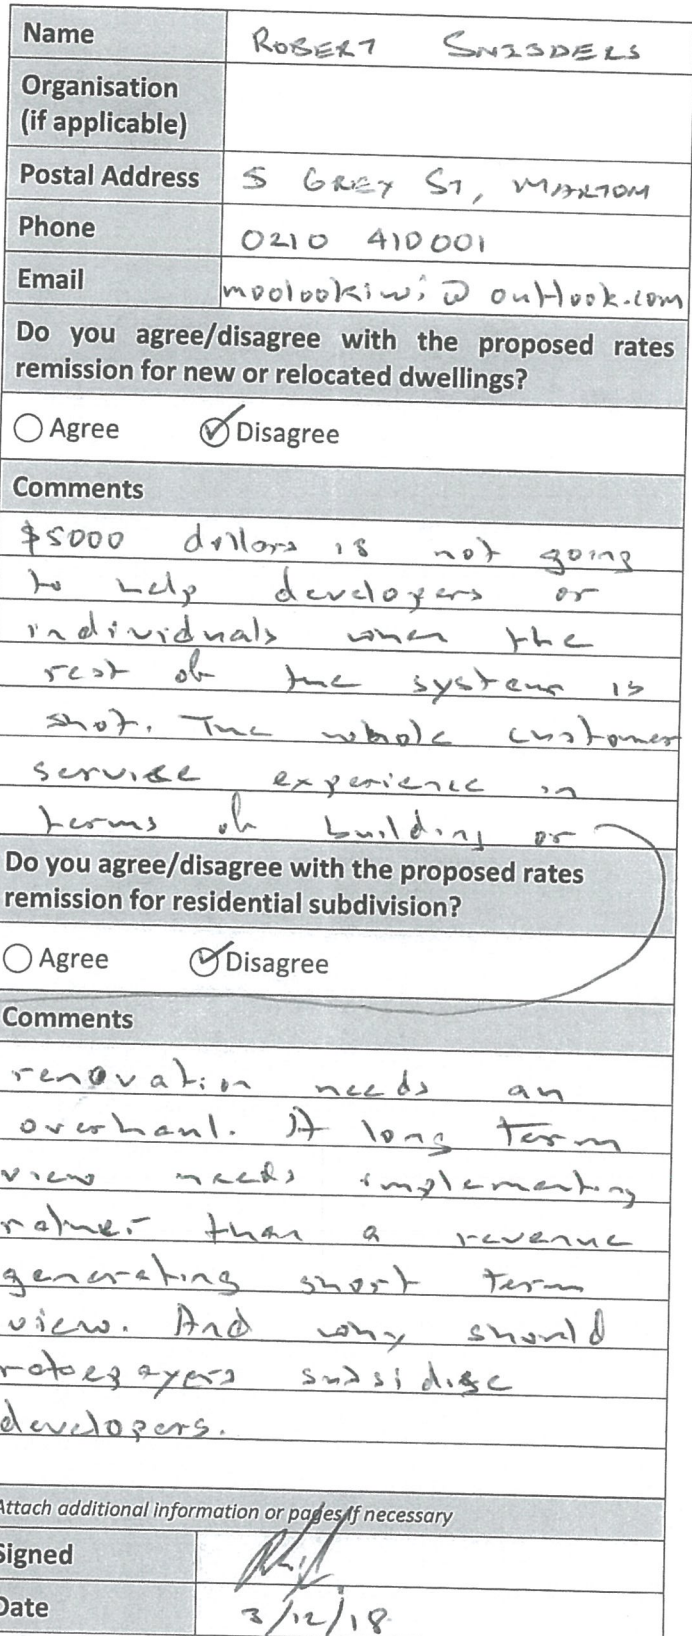 Name ROBERT SNIJDERS
Organisation
(if applicable)
Postal Address 5 GREY ST, MARTON
Phone 0210 410001
Email moolookiwi@outlook.com
Do you agree/disagree with the proposed rates
remission for new or relocated dwellings?
Agree Disagree
Comments
$5000 dollars is not going
to help developers or
individuals when the
rest of the system is
shot. The whole customer
service experience in
terms of building or
Do you agree/disagree with the proposed rates
remission for residential subdivision?
Agree Disagree
Comments
renovation needs an
overhaul. A long term
view needs implementing
rather than a revenue
generating short term
view. And why should
ratepayers subsidise
developers.
Attach additional information or pages if necessary
Signed
Date 3/12/18